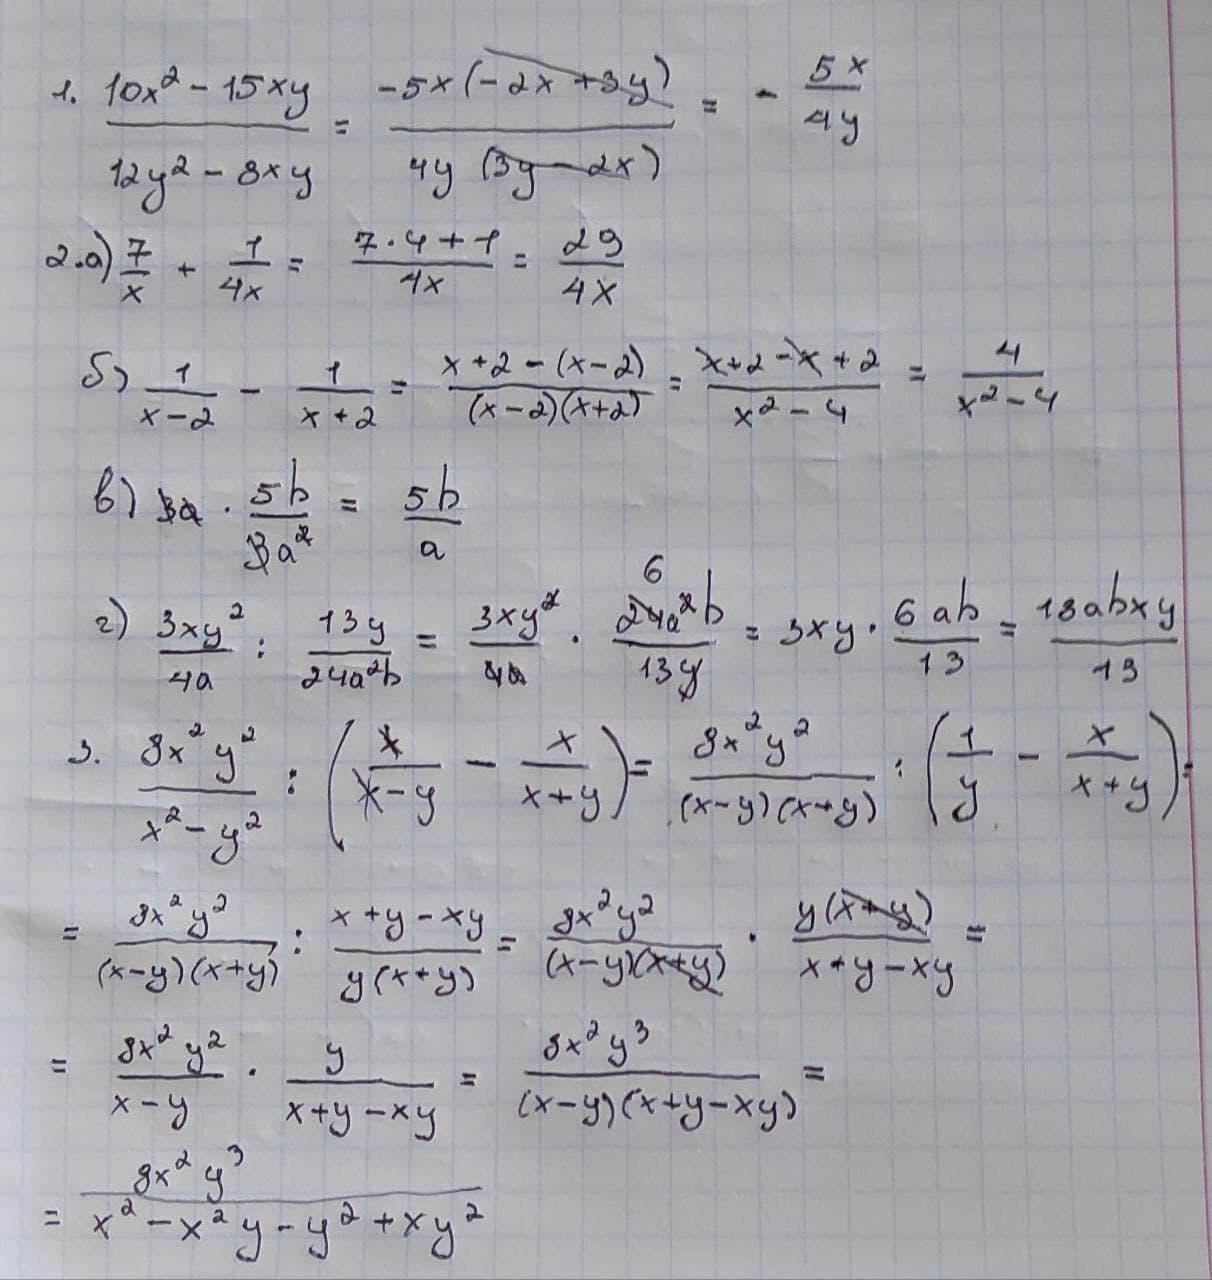 1. (10x² - 15xy)/(12y² - 8xy) = (-5x(-2x + 3y))/(4y (3y - 2x)) = - 5x/4y
2.а) 7/x + 1/4x = (7·4+1)/4x = 29/4x
б) 1/(x-2) - 1/(x+2) = (x+2-(x-2))/((x-2)(x+2)) = (x+2-x+2)/(x²-4) = 4/(x²-4)
в) 3a · 5b/3a² = 5b/a
г) 3xy²/4a : 13y/24a²b = 3xy²/4a · 6 24a²b/13y = 3xy · 6ab/13 = 18abxy/13
3. 8x²y²/(x²-y²) : (x/(x-y) - x/(x+y)) = 8x²y²/((x-y)(x+y)) : (1/y - x/(x+y)) =
= 8x²y²/((x-y)(x+y)) : (x+y-xy)/(y(x+y)) = 8x²y²/((x-y)(x+y)) · y(x+y)/(x+y-xy) =
= 8x²y²/(x-y) · y/(x+y-xy) = 8x²y³/((x-y)(x+y-xy)) =
= 8x²y³/(x²-x²y-y²+xy²)